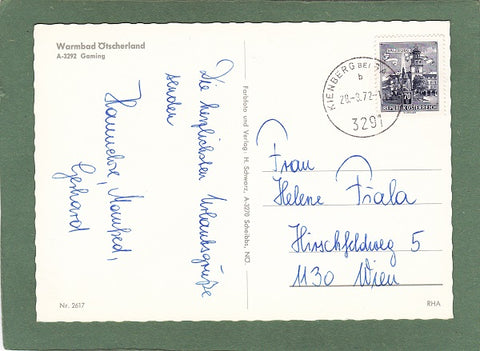 Warmbad Ötscherland
A-3292 Gaming
Die herzlichsten Urlaubsgrüße
senden
Hannelore, Manfred,
Gerhard
Nr. 2617
Farbfoto und Verlag: H. Schwarz, A-3270 Scheibbs, NÖ.
KIENBERG BEI
b
72
3291
SALZBURG
REPUBLIK ÖSTERREICH
Frau
Helene Fiala
Hirschfeldweg 5
1130 Wien
RHA